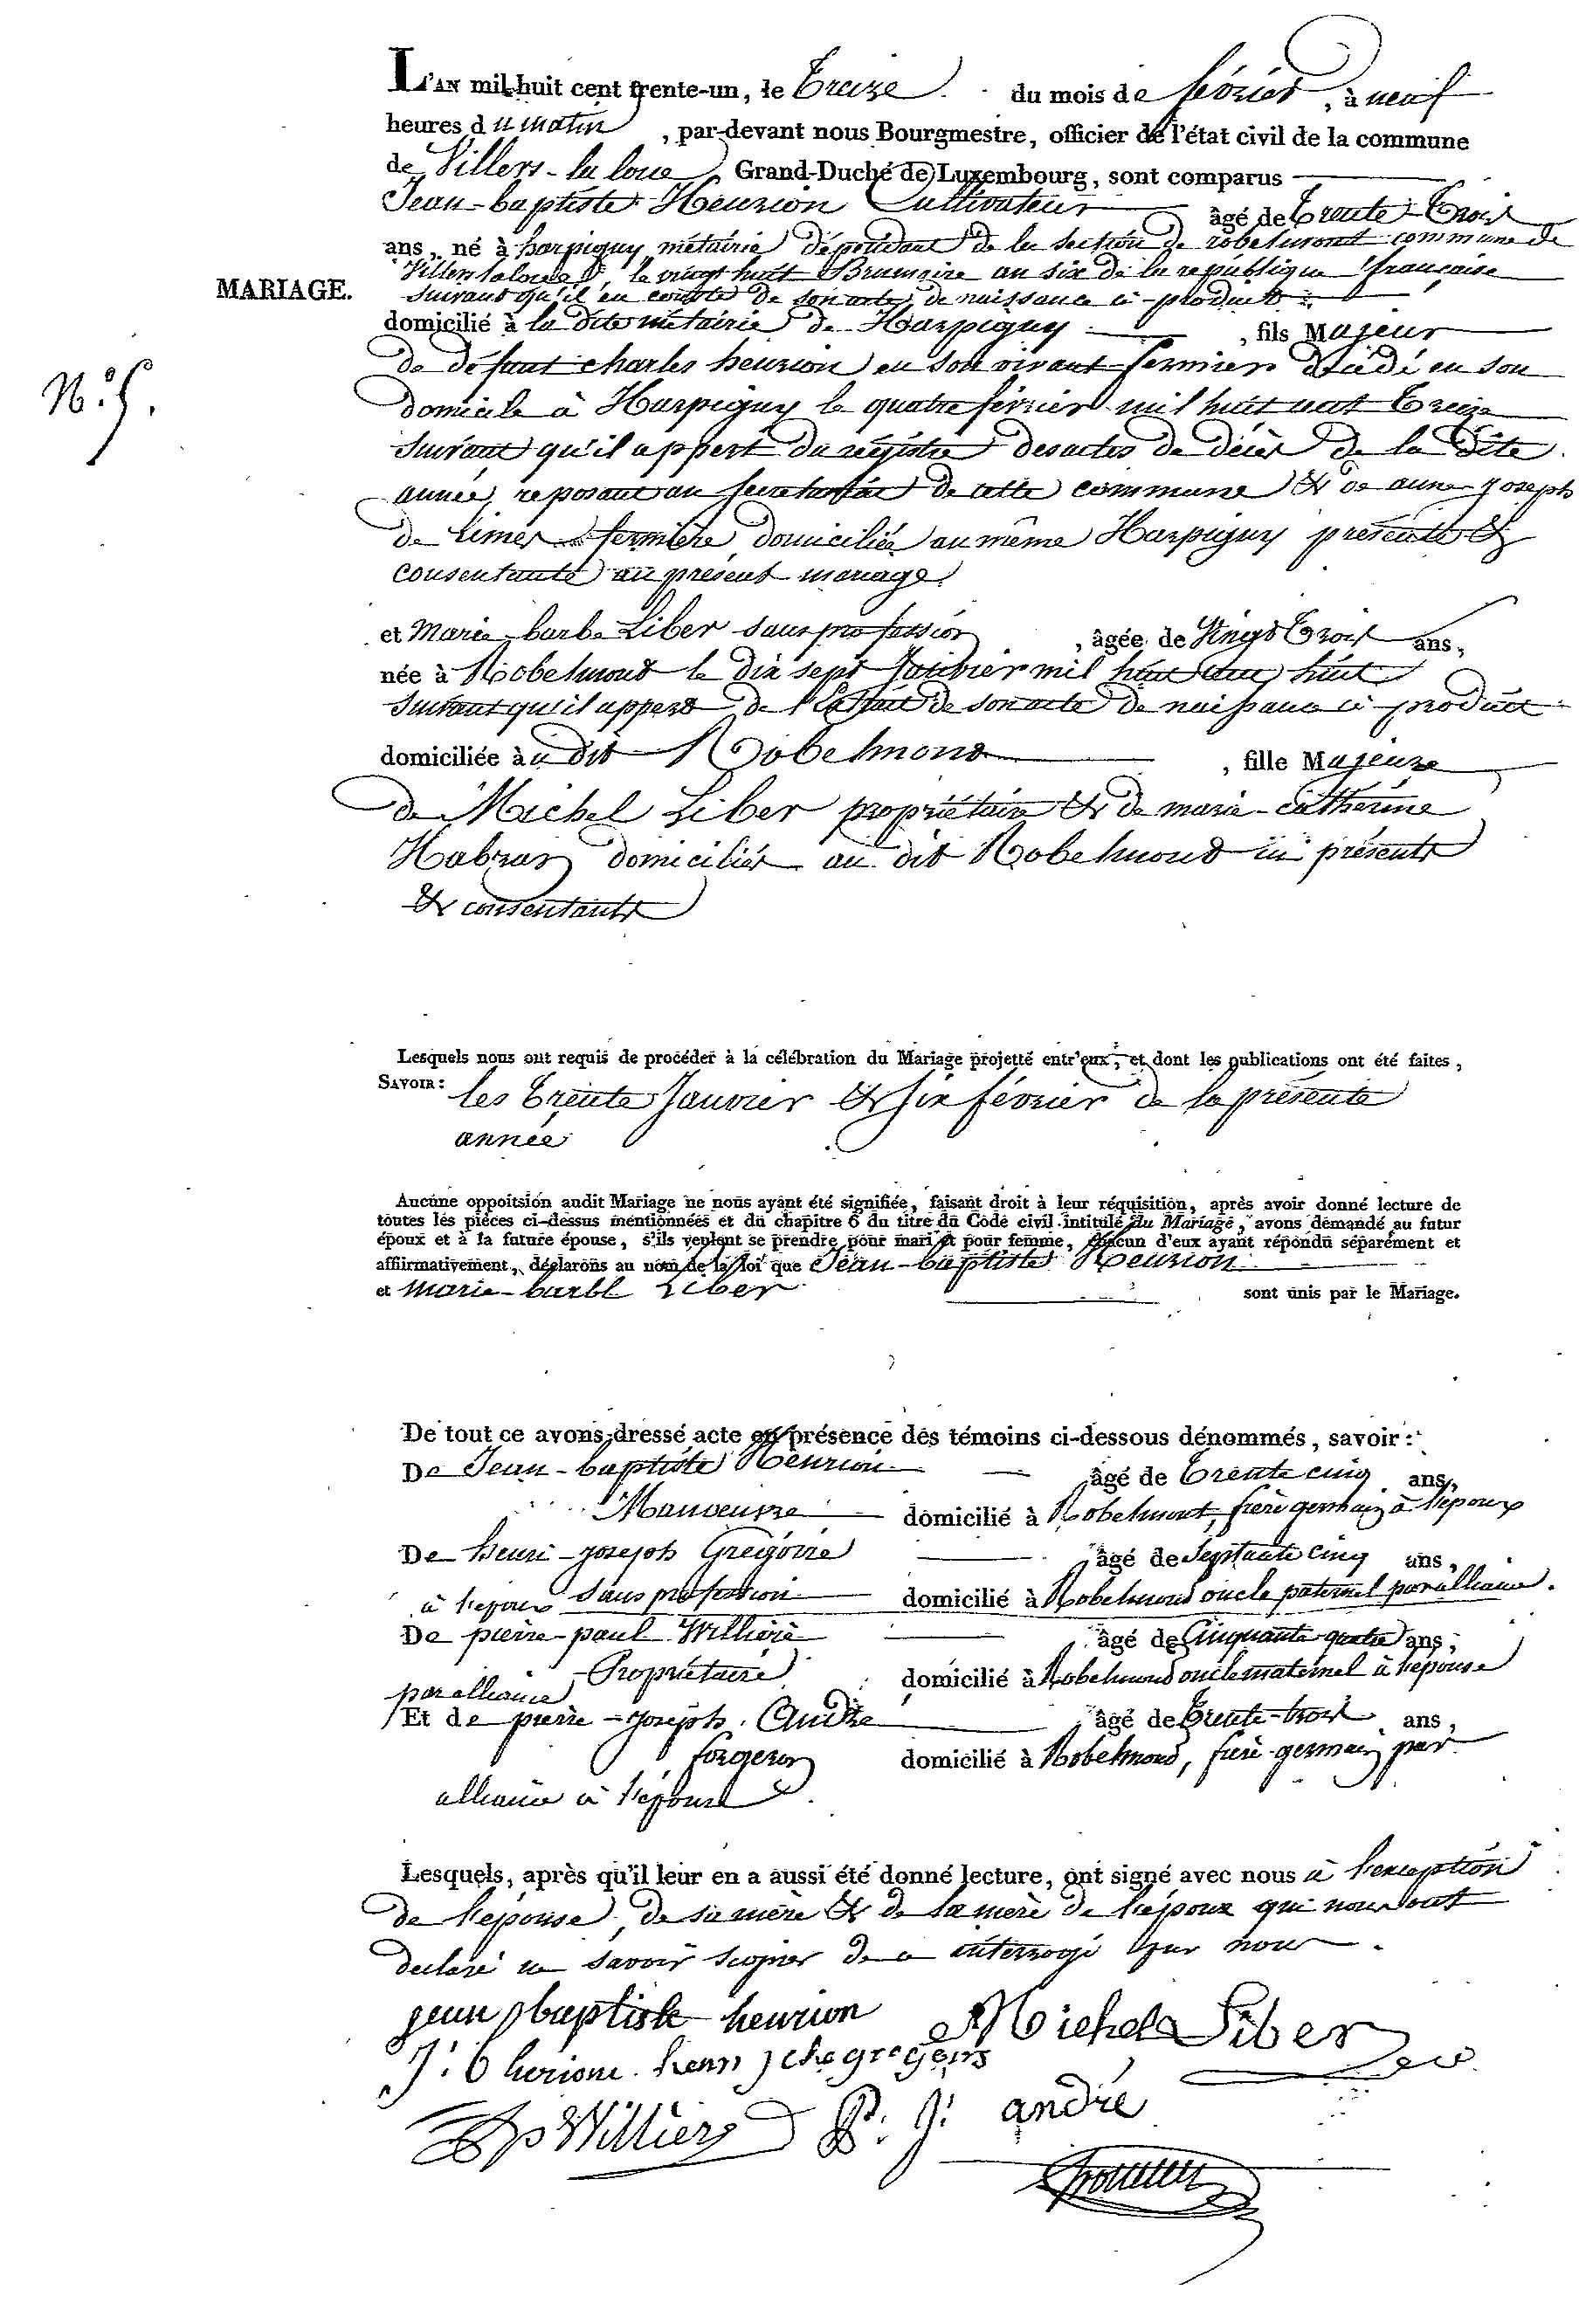 L'AN mil huit cent trente-un, le Treize du mois de février, à neuf
heures du matin, par-devant nous Bourgmestre, officier de l'état civil de la commune
de Villers-la loue Grand-Duché de Luxembourg, sont comparus
Jean-baptiste Henrion Cultivateur âgé de Trente-Trois
ans, né à harpigny métairie dépendant de la section de robelmont commune de
Villers la loue, le vingt huit Brumaire an six de la république française
MARIAGE.
suivant qu'il en conste de son acte de naissance ci-produit
domicilié à la dite métairie de Harpigny, fils Majeur
N.° 5.
de défunt charles henrion en son vivant fermier décédé en son
domicile à Harpigny le quatre février mil huit cent Treize
suivant qu'il appert du régistre des actes de décès de la dite
année, reposant au secretariat de cette commune & de anne joseph
de Limes fermière domiciliée au même Harpigny présente &
consentante au présent mariage
et Marie-barbe Liber sans profession, âgée de Vingt Trois ans,
née à Robelmont le dix sept Janvier mil huit cent huit
suivant qu'il appert de l'Extrait de son acte de naissance ci-produit
domiciliée à u dit Robelmont, fille Majeure
de Michel Liber propriétaire & de marie-catherine
Habran domiciliés au dit Robelmont ici présents
& consentants
Lesquels nous ont requis de procéder à la célébration du Mariage projetté entr'eux, et dont les publications ont été faites,
SAVOIR: les Trente Janvier & six février de la présente
année
Aucune oppoitsion audit Mariage ne nous ayant été signifiée, faisant droit à leur réquisition, après avoir donné lecture de
toutes les pièces ci-dessus mentionnées et du chapitre 6 du titre du Code civil intitulé du Mariage, avons demandé au futur
époux et à la future épouse, s'ils veulent se prendre pour mari et pour femme, chacun d'eux ayant répondu séparément et
affirmativement, déclarons au nom de la loi que Jean-baptiste Henrion
et marie-barbe Liber sont unis par le Mariage.
De tout ce avons dressé acte en présence des témoins ci-dessous dénommés, savoir:
De Jean-baptiste Henrion âgé de Trente cinq ans,
Manoeuvre domicilié à Robelmont, frère germain à l'époux
De henri-joseph Grégoire âgé de Septante cinq ans,
à l'époux sans profession domicilié à Robelmont oncle paternel par alliance.
De pierre-paul Williere âgé de Cinquante-quatre ans,
par alliance Propriétaire domicilié à Robelmont oncle maternel à l'épouse
Et de pierre-joseph André âgé de Trente-trois ans,
forgeron domicilié à Robelmont, frère germain par
alliance à l'épouse
Lesquels, après qu'il leur en a aussi été donné lecture, ont signé avec nous à l'exception
de l'épouse, de sa mère & de la mère de l'époux qui nous ont
declaré ne savoir signer de ce interrogé par nous.
jean baptiste henrion Michel Liber
J: b herione. henri j che gregoirs
pp Williers P: J: andré